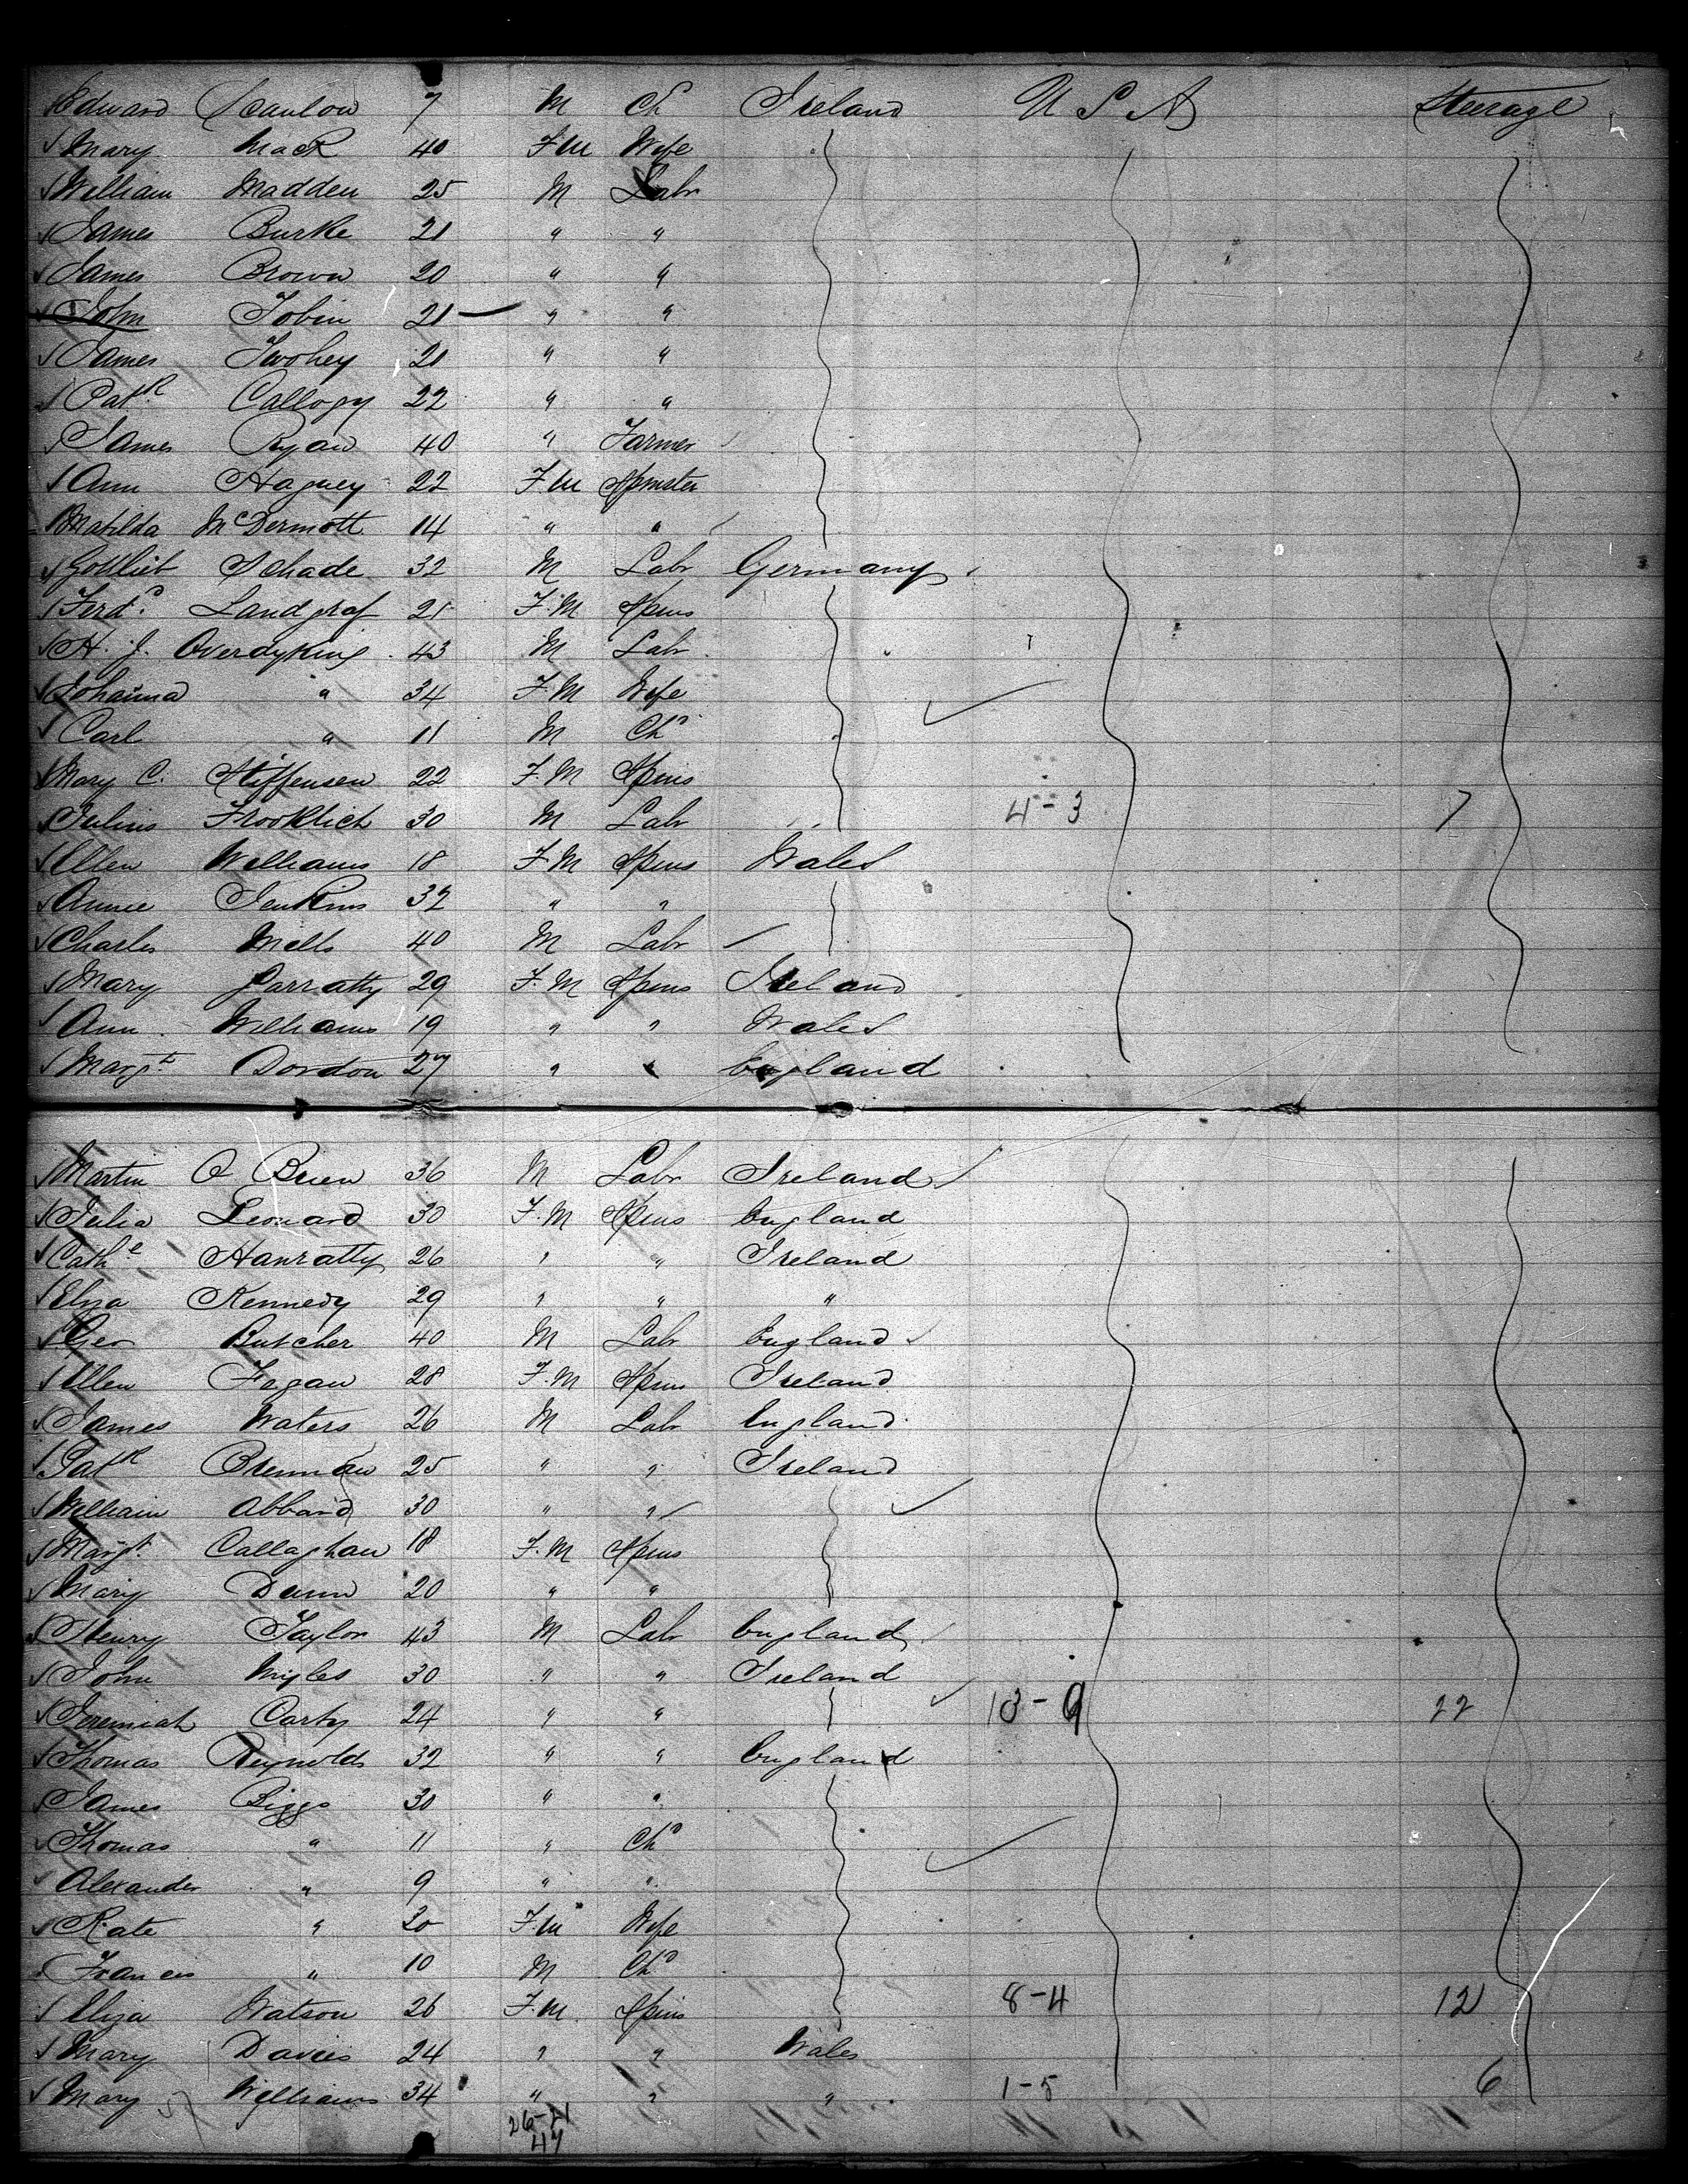 Edward Scanlon 7 M Ch Ireland U S A Steerage
Mary Mack 40 F M Wife
William Madden 25 M Labr
James Burke 21 " "
James Brown 20 " "
John Tobin 21 " "
James Twohey 21 " "
Patk Callopy 22 " "
James Ryan 40 " Farmer
Ann Hagney 22 F. M Spinster
Matilda McDermott 14 " "
Gottliet Schade 32 M Labr Germany
Ferdd Landgraf 21 F. M Spins
H. J. Overdyking 43 M Labr
Johanna " 34 F. M Wife
Carl " 11 M Chd
Mary C. Stiffensen 22 F. M Spins
Julius Frooklich 30 M Labr 4-3 7
Ellen Williams 18 F. M Spins Wales
Annie Jenkins 32 " "
Charles Mells 40 M Labr
Mary Garratty 29 F. M Spins Ireland
Ann Williams 19 " " Wales
Margt Dordon 27 " " England
Martin O Brien 36 M Labr Ireland
Julia Leonard 30 F. M Spins England
Cathe Hanratty 26 " " Ireland
Eliza Kennedy 29 " " "
Geo Butcher 40 M Labr England
Ellen Fagan 28 F. M Spins Ireland
James Waters 26 M Labr England
Patk Brennan 25 " " Ireland
William Abband 30 " "
Margt Callaghan 18 F. M Spins
Mary Dunn 20 " "
Henry Taylor 43 M Labr England
John Myles 30 " " Ireland
Jeremiah Carty 24 " " 13-9 22
Thomas Reynolds 32 " " England
James Biggs 30 " "
Thomas " 11 " Chd
Alexander " 9 " "
Kate " 30 F. M Wife
Francis " 10 M Chd
Eliza Watson 26 F. M. Spins 8-4 12
Mary Davies 24 " " Wales
Mary Williams 34 " " " 1-5 6
26-21
47